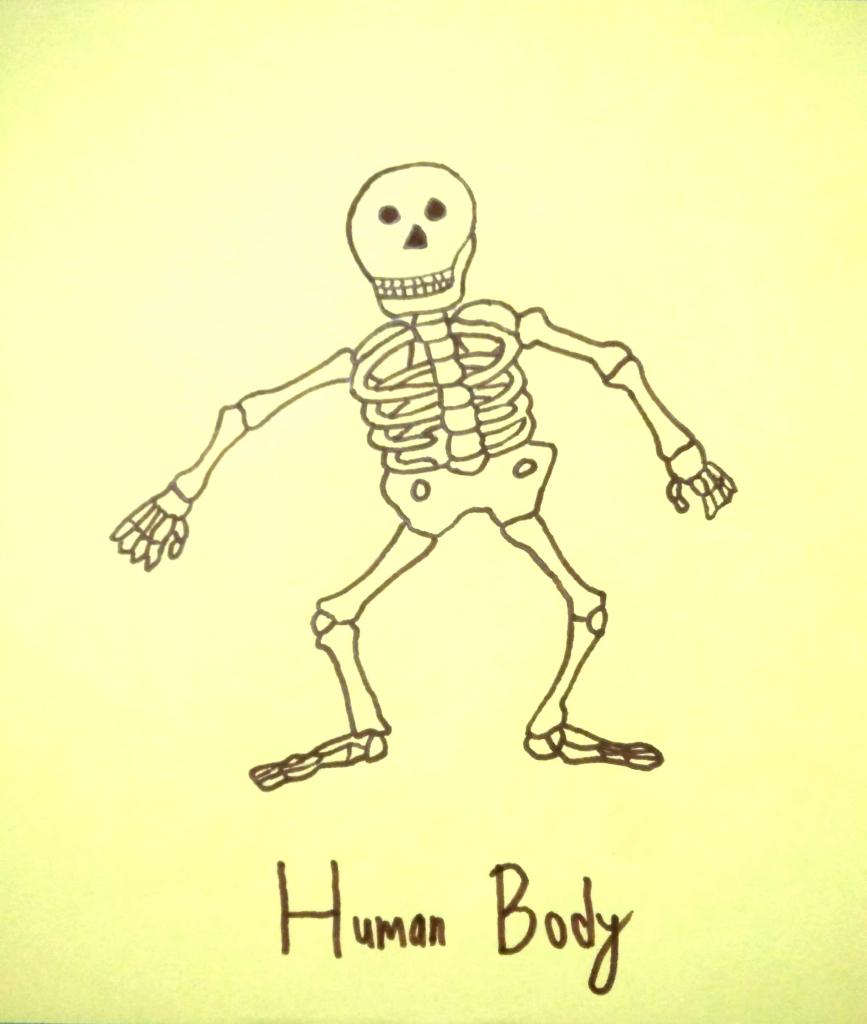 Human Body